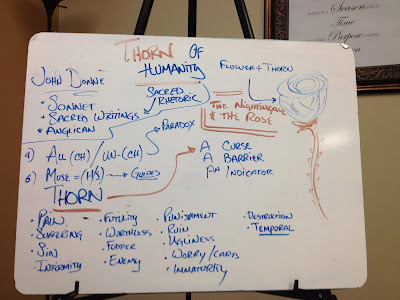 THORN OF
HUMANITY
JOHN DONNE
* SONNET
* SACRED WRITINGS
* ANGLICAN
SACRED
RHETORIC
FLOWER + THORN
THE NIGHTINGALE
& THE ROSE
PARADOX
4) ALL (CH) / UN-(CH)
6) MUSE = (H/S) → GUIDES
THORN
A CURSE
A BARRIER
AN INDICATOR
• PAIN
• SUFFERING
• SIN
• INFIRMITY
• FUTILITY
• WORTHLESS
• FODDER
• ENEMY
• PUNISHMENT
• RUIN
• UGLINESS
• WORRY/CARES
• IMMATURITY
• DESTRUCTION
• TEMPORAL
THERE IS A SEASON
TIME
PURPOSE